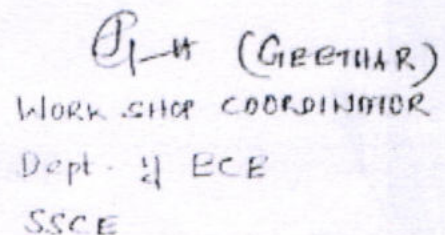 (GEETHA R)
WORKSHOP COORDINATOR
Dept. of ECE
SSCE